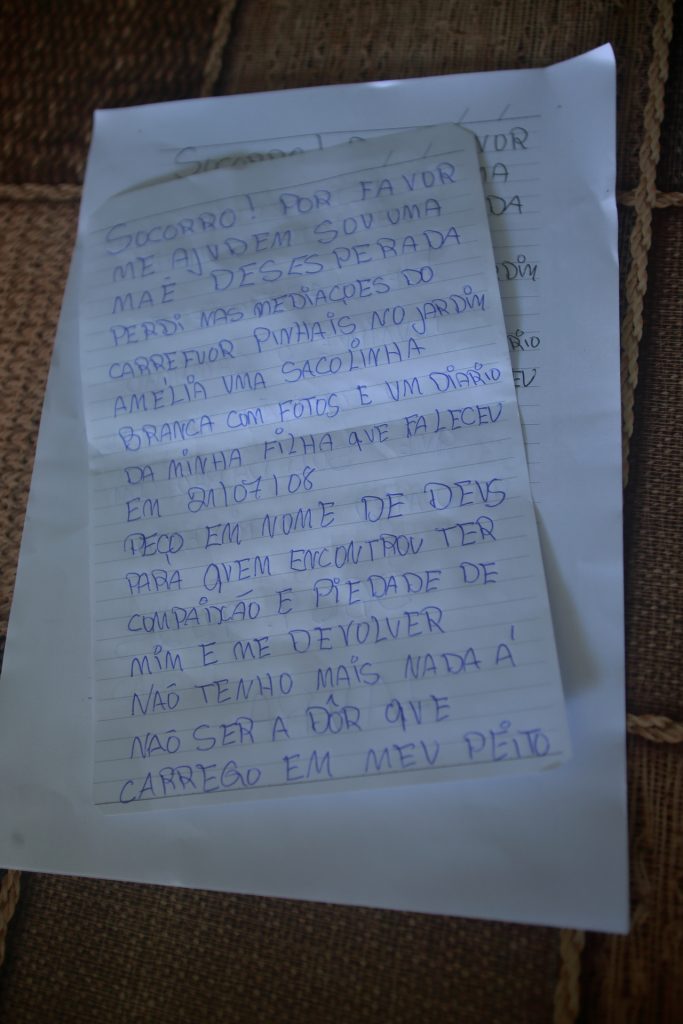 SOCORRO! POR FAVOR
ME AJUDEM SOU UMA
MAÊ DESESPERADA
PERDI NAS MEDIAÇOES DO
CARREFUOR PINHAIS NO JARDIM
AMÉLIA UMA SACOLINHA
BRANCA COM FOTOS E UM DIARIO
DA MINHA FILHA QUE FALECEU
EM 21/07/08
PEÇO EM NOME DE DEUS
PARA QUEM ENCONTROU TER
COMPAIXÃO E PIEDADE DE
MIM E ME DEVOLVER
NAÕ TENHO MAIS NADA Á
NAÕ SER A DÔR QUE
CARREGO EM MEU PEITO
SOCORRO!
VOR
DA
DIM
RIO
EU